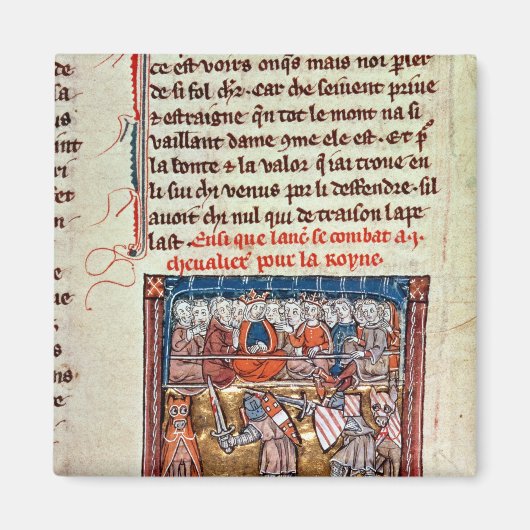 de
sa
us
m
ce est voirs onq̃s mais noi pler
de si fol chr̃. Car che seiuent priue
⁊ estraigne q̃n tot le mont na si
vaillant dame ꝯme ele est. Et p̃
la bonte ⁊ la valor q̃ iai troue en
li sui chi venus por li deffendre. sil
auoit chi nul qui de traison lape
last. Ensi que lanc̃. se combat a .j.
cheualier pour la Royne.
e
ns